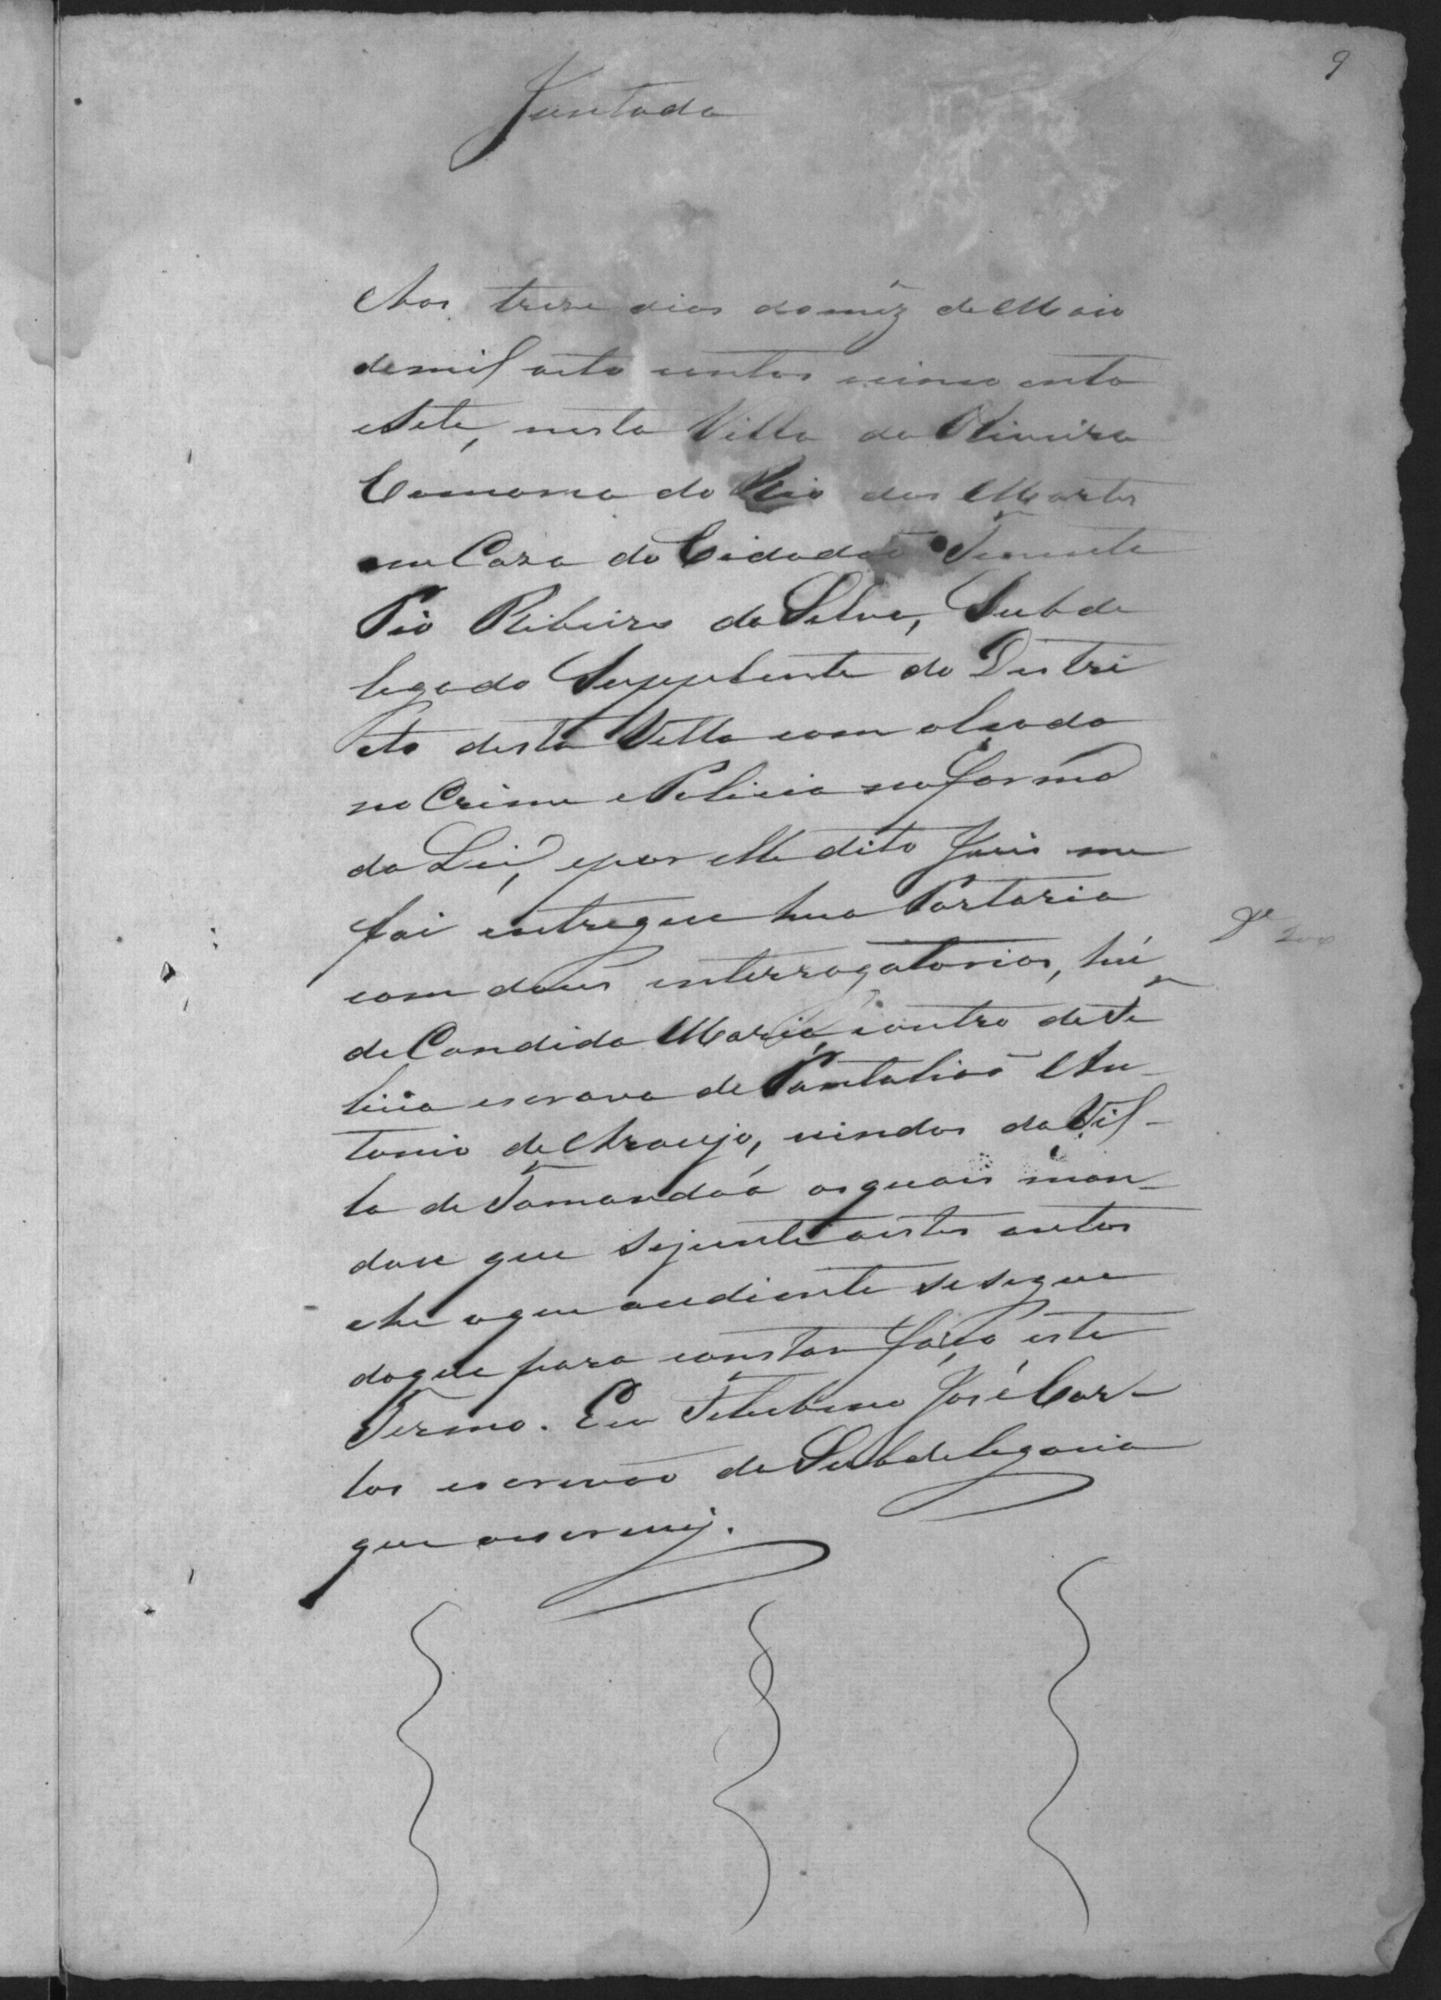 9
Juntada
Aos treze dias do mêz de Maio
de mil oito centos cincoenta
e Sete, nesta Villa da Oliveira
Comarca do Rio das Mortes
em Caza do Cidadaõ Tenente
Pio Ribeiro da Silva, Subde
legado Supplente do Destri
cto desta Villa com alçada
no Crime e Policia na forma
da Lei, e por elle dito Juis me
foi entregue hua Portaria
com dous interrogatorios, hú
de Candida Maria, e outro de Fe
licia escrava de Pantaliaõ An-
tonio de Araujo, vindos da Vil-
la de Tamanduá os quais man-
dou que se junte a estes autos
e he o que a o diante se segue
do que para constar faço este
Termo. Eu Felisbino José Car-
los escrivaõ da Subdelegacia
que o escrevi.